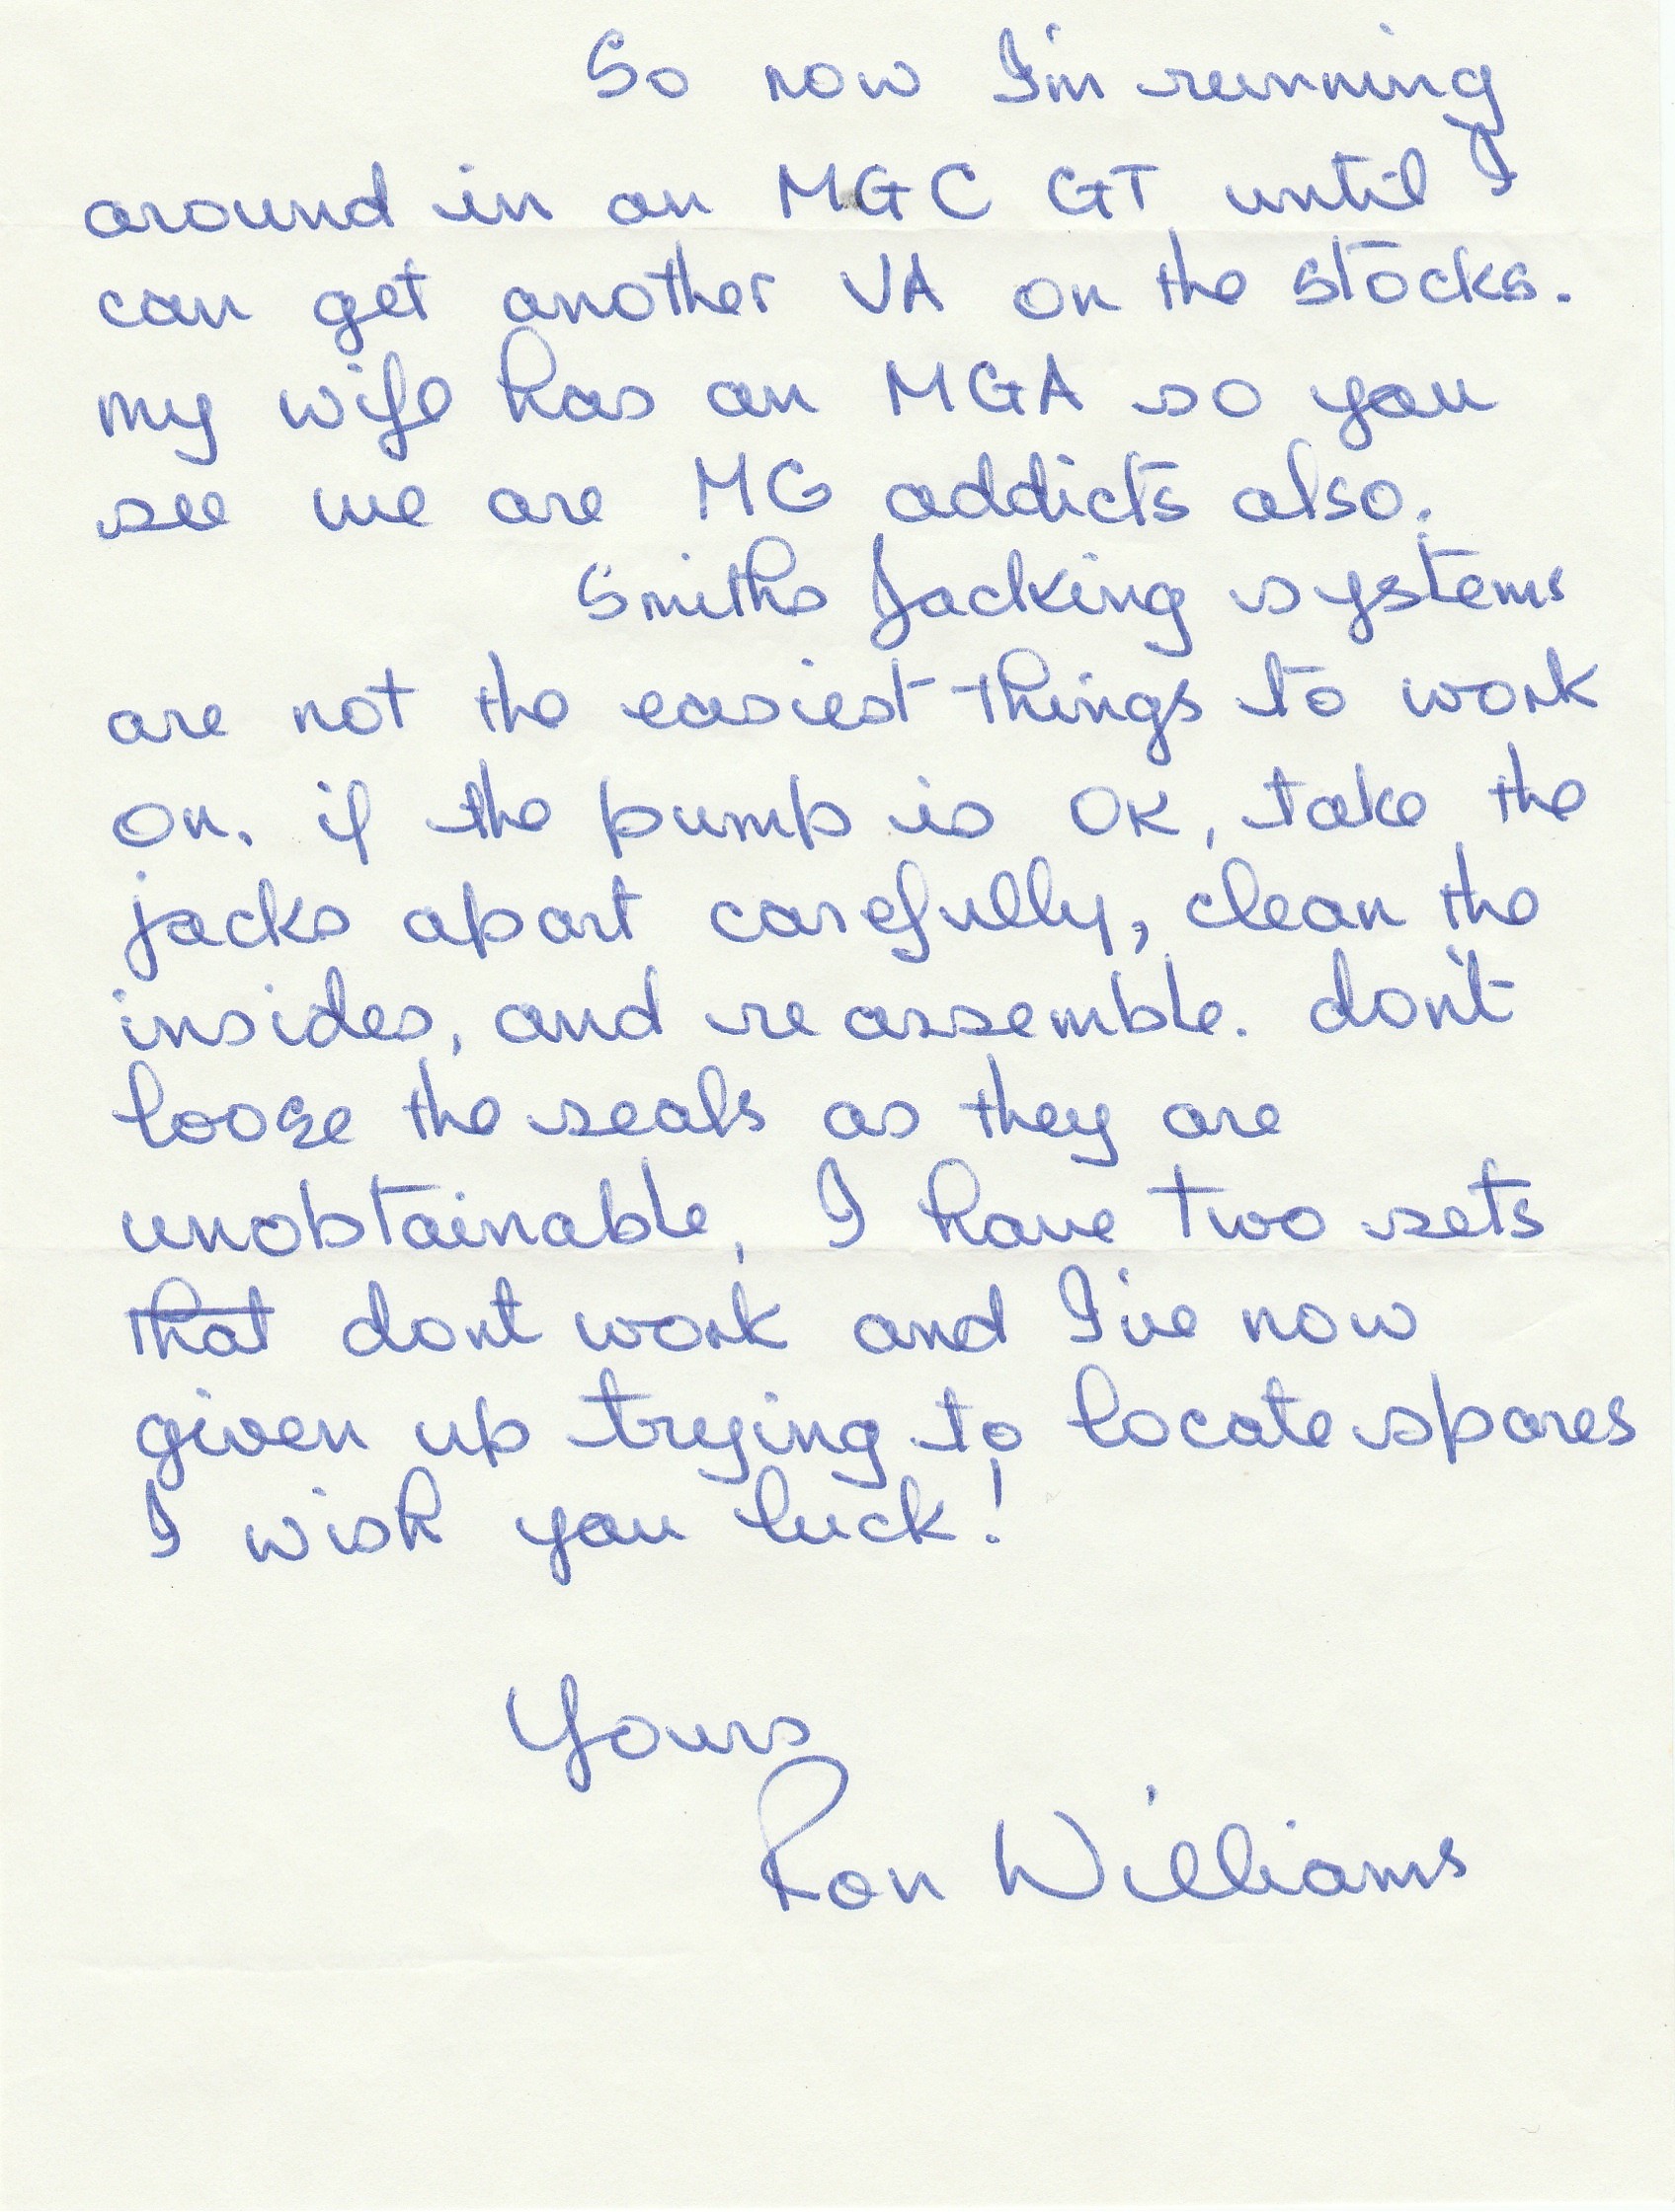 So now I'm running
around in an MGC GT until I
can get another VA on the stocks.
my wife has an MGA so you
see we are MG addicts also.
Smiths Jacking systems
are not the easiest things to work
on. if the pump is OK, take the
jacks apart carefully, clean the
insides, and re assemble. don't
loose the seals as they are
unobtainable, I have two sets
that dont work and I've now
given up trying to locate spares
I wish you luck!
Yours
Ron Williams